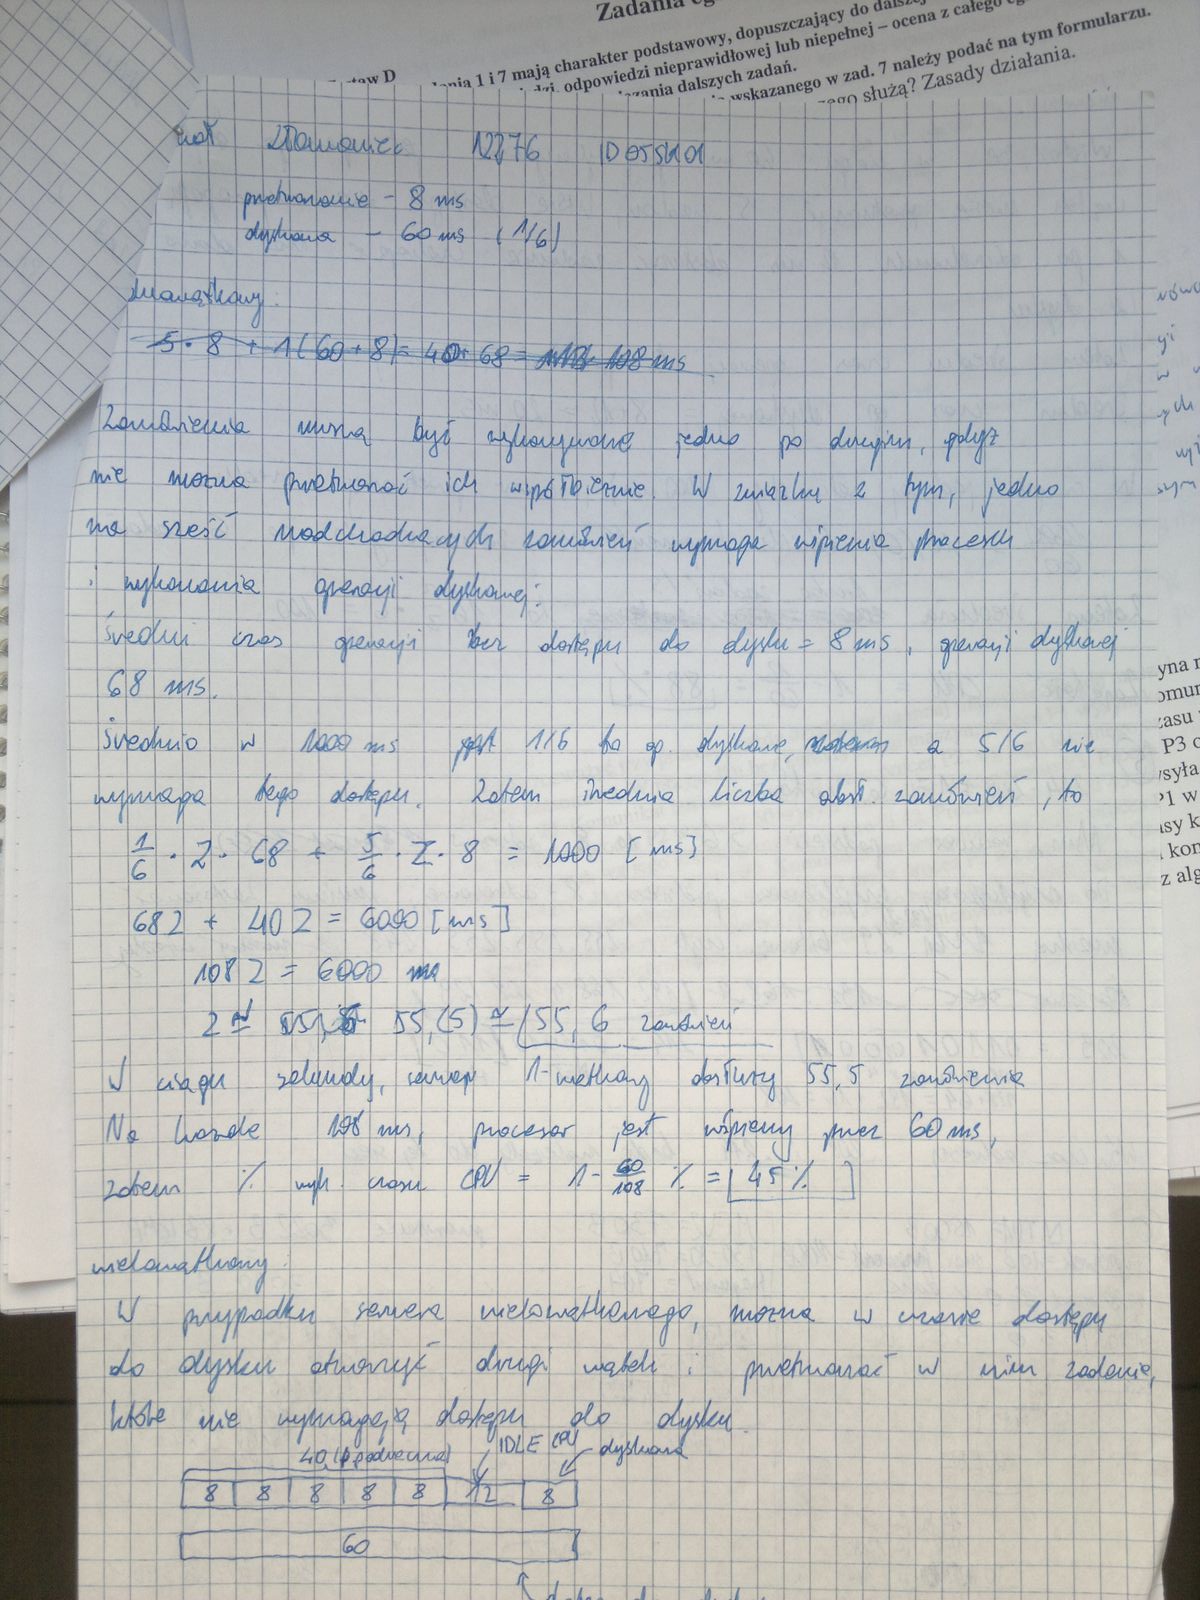 Zadania
dania 1 i 7 mają charakter podstawowy, dopuszczający do dalszej
odpowiedzi nieprawidłowej lub niepełnej – ocena z całego
zania dalszych zadań.
wskazanego w zad. 7 należy podać na tym formularzu.
służą? Zasady działania.
przetwarzanie - 8 ms
dyskowa - 60 ms (1/6)
5 · 8 + 1(60+8) = 40 + 68 = 108 ms
Zamówienia muszą być wykonywane jedno po drugim, gdyż
nie można przetwarzać ich współbieżnie. W związku z tym, jedno
na sześć nadchodzących zamówień wymaga uśpienia procesu
i wykonania operacji dyskowej.
Średni czas operacji bez dostępu do dysku = 8 ms, operacji dyskowej
68 ms.
Średnio w 1000 ms jest 1/6 to op. dyskowe, a 5/6 nie
wymaga tego dostępu. Zatem średnia liczba obsł. zamówień, to
1/6 · Z · 68 + 5/6 · Z · 8 = 1000 [ms]
68Z + 40Z = 6000 [ms]
108Z = 6000 ms
Z ≃ 55,(5) ≃ 55,6 zamówień
W ciągu sekundy, serwer 1-wątkowy obsłuży 55,5 zamówienia
Na każde 108 ms, procesor jest uśpiony przez 60 ms,
zatem % wyk. czasu CPU = 1 - 60/108 % = 45%
wielowątkowy:
W przypadku serwera wielowątkowego, można w czasie dostępu
do dysku otworzyć drugi wątek i przetwarzać w nim zadania,
które nie wymagają dostępu do dysku.
IDLE CPU
dyskowa
8 8 8 8 8 12 8
60